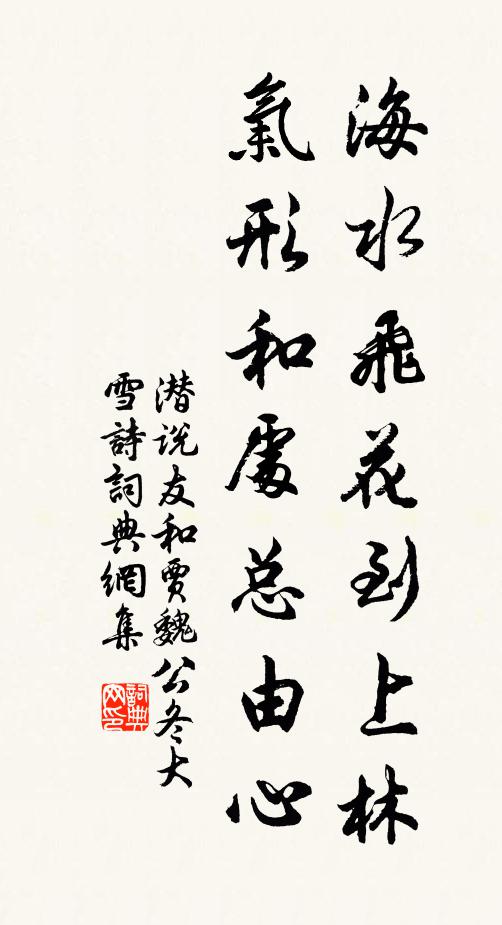 海水飛花到上林
氣形和處总由心
潜说友和賈魏公冬大
雪詩詞典網集
詞典网印